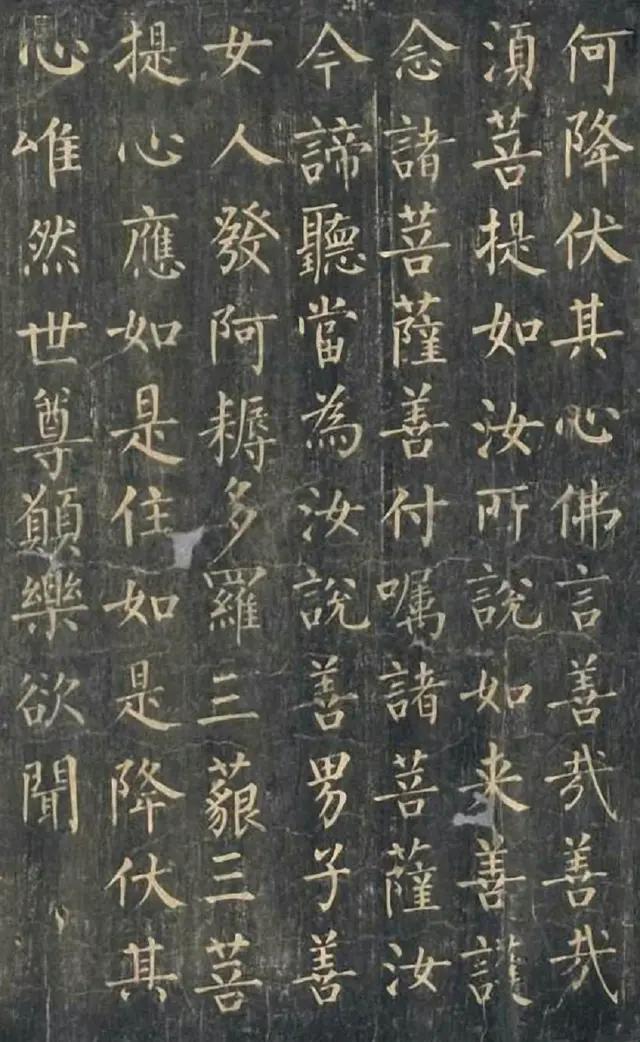 何降伏其心佛言善哉善哉
湏菩提如汝所說如来善護
念諸菩薩善付嘱諸菩薩汝
今諦聽當為汝說善男子善
女人發阿耨多羅三藐三菩
提心應如是住如是降伏其
心唯然世尊願樂欲聞